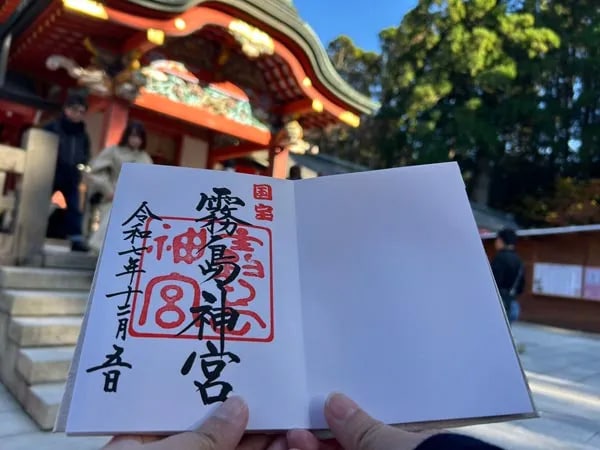 国宝
霧島神宮
霧島
神宮
令和七年十二月五日